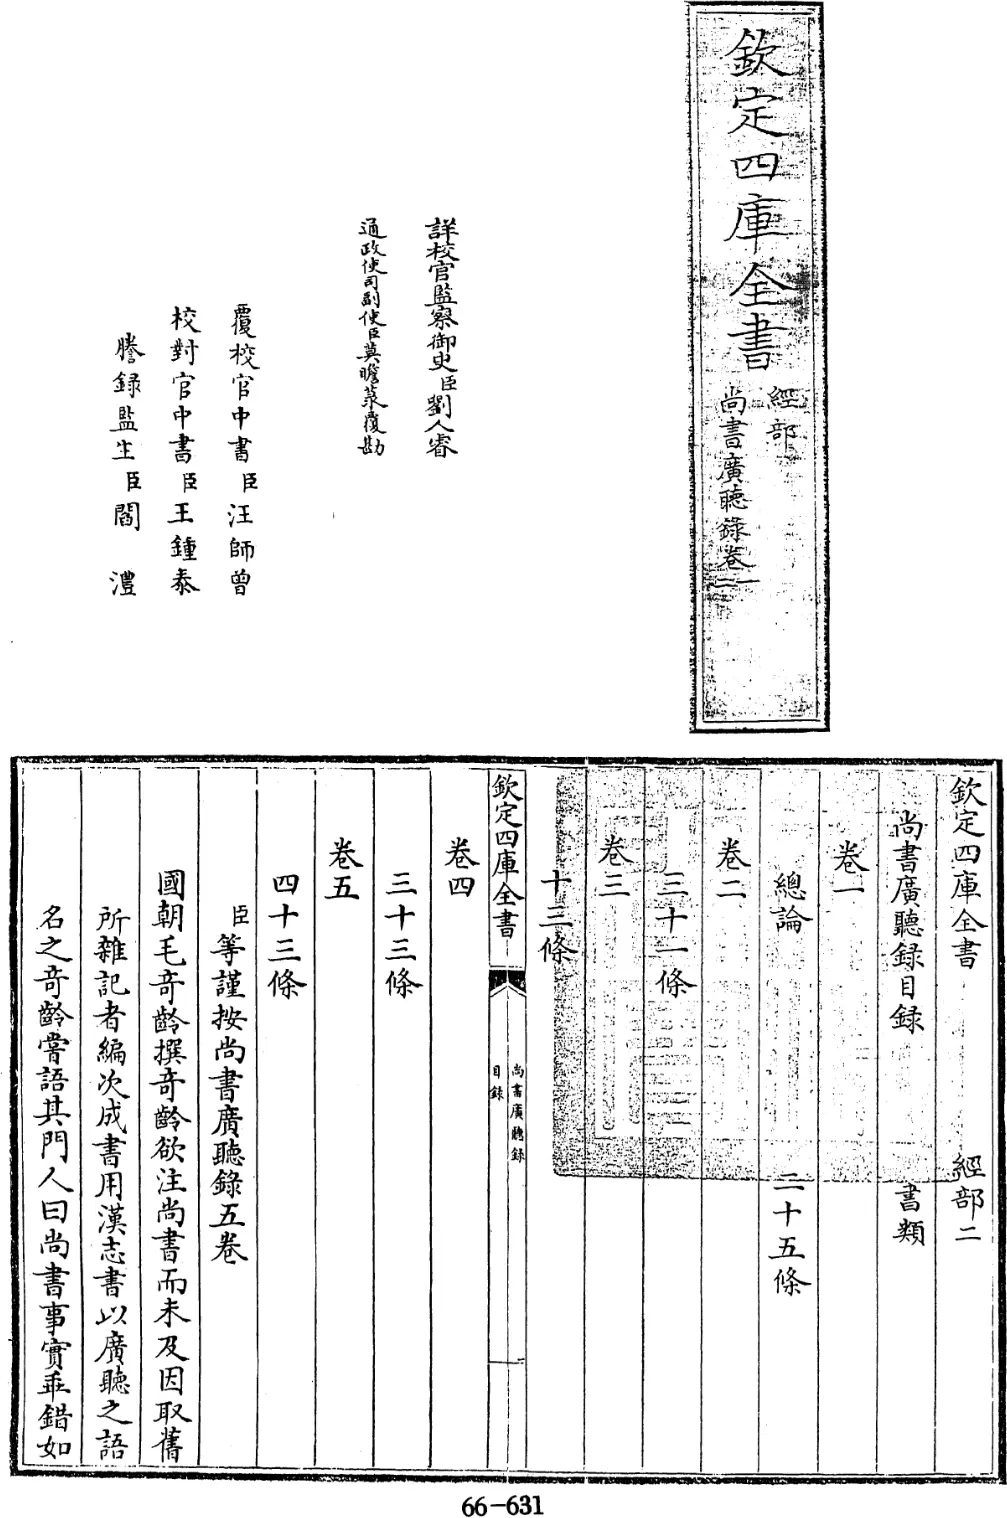 欽定四庫全書
經部
尚書廣聽錄卷一二
詳校官監察御史臣劉人睿
通政使司副使臣莫瞻菉覆勘
覆校官中書臣汪師曾
校對官中書臣王鍾泰
謄錄監生臣閻澧
欽定四庫全書 經部二
尚書廣聽録目録 書類
卷一
總論 二十五條
卷二
三十一條
卷三
十三條
欽定四庫全書
尚書廣聽錄
目錄
卷四
三十三條
卷五
四十三條
臣等謹按尚書廣聽錄五卷
國朝毛奇齡撰奇齡欲注尚書而未及因取舊
所雜記者編次成書用漢志書以廣聽之語
名之奇齡嘗語其門人曰尚書事實乖錯如
66-631